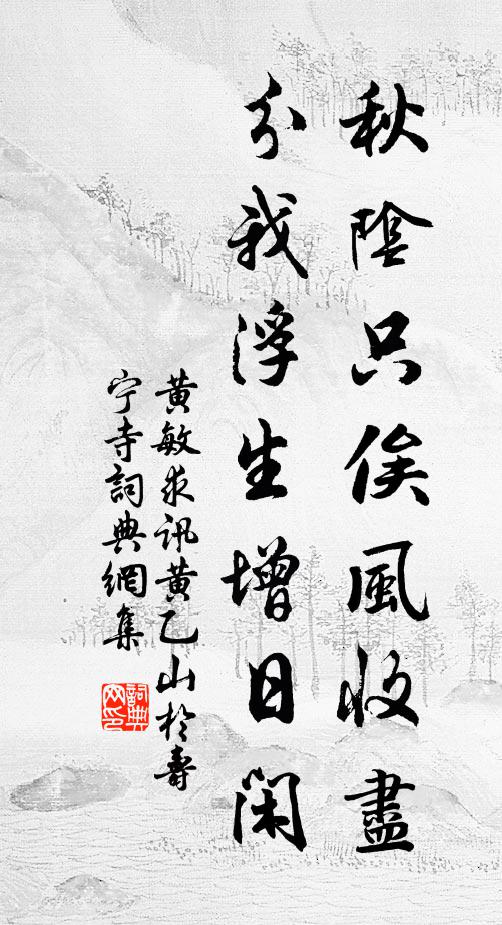 秋陰只俟風收盡
分我浮生增日閑
黃敏求訊黃乙山於壽
宁寺詞典網集
詞典网印